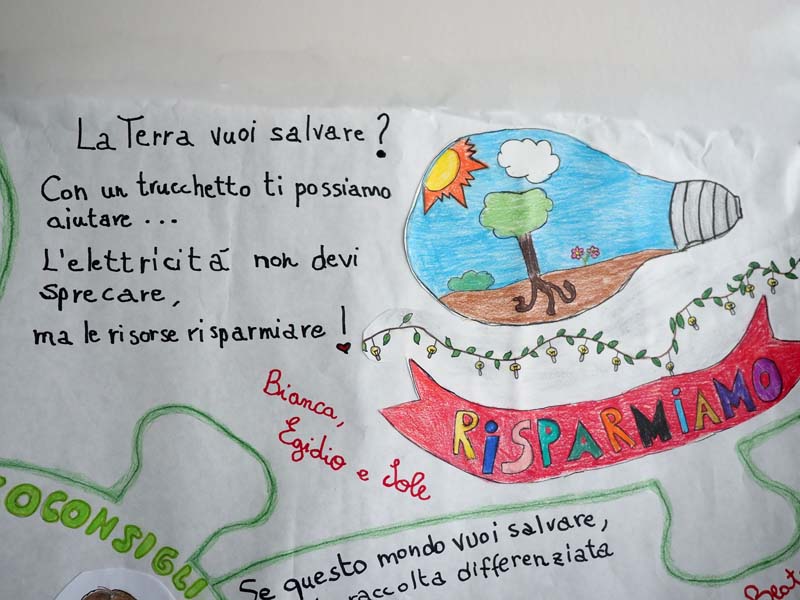 La Terra vuoi salvare?
Con un trucchetto ti possiamo
aiutare ...
L'elettricità non devi
sprecare,
ma le risorse risparmiare!
Bianca,
Egidio e Sole
RiSPARMiAMO
OCONSIGLI
Se questo mondo vuoi salvare,
raccolta differenziata
Beat